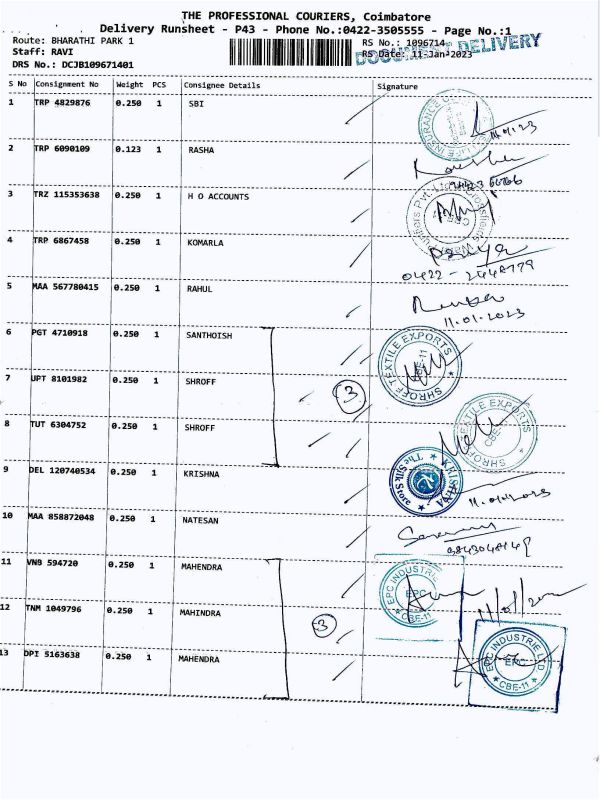 THE PROFESSIONAL COURIERS, Coimbatore
Delivery Runsheet - P43 - Phone No.:0422-3505555 - Page No.:1
Route: BHARATHI PARK 1
RS No.: 1096714
DOCUMENT DELIVERY
Staff: RAVI
RS Date: 11-Jan-2023
DRS No.: DCJB109671401
S No Consignment No Weight PCS Consignee Details Signature
1 TRP 4829876 0.250 1 SBI
2 TRP 6090109 0.123 1 RASHA
3 TRZ 115353638 0.250 1 H O ACCOUNTS
4 TRP 6867458 0.250 1 KOMARLA
0422-2448779
5 MAA 567780415 0.250 1 RAHUL
11.01.2023
6 PGT 4710918 0.250 1 SANTHOISH
SHROFF TEXTILE EXPORTS
CBE-11
7 UPT 8101982 0.250 1 SHROFF
3
8 TUT 6304752 0.250 1 SHROFF
SHROFF TEXTILE EXPORTS
CBE-11
9 DEL 120740534 0.250 1 KRISHNA
KRISHNA
The Silk Store
11.01.2023
10 MAA 858872048 0.250 1 NATESAN
11 VNB 594720 0.250 1 MAHENDRA
EPC INDUSTRIE
EPC
CBE-11
12 TNM 1049796 0.250 1 MAHINDRA
3
13 DPI 5163638 0.250 1 MAHENDRA
EPC INDUSTRIE LTD
EPC
CBE-11